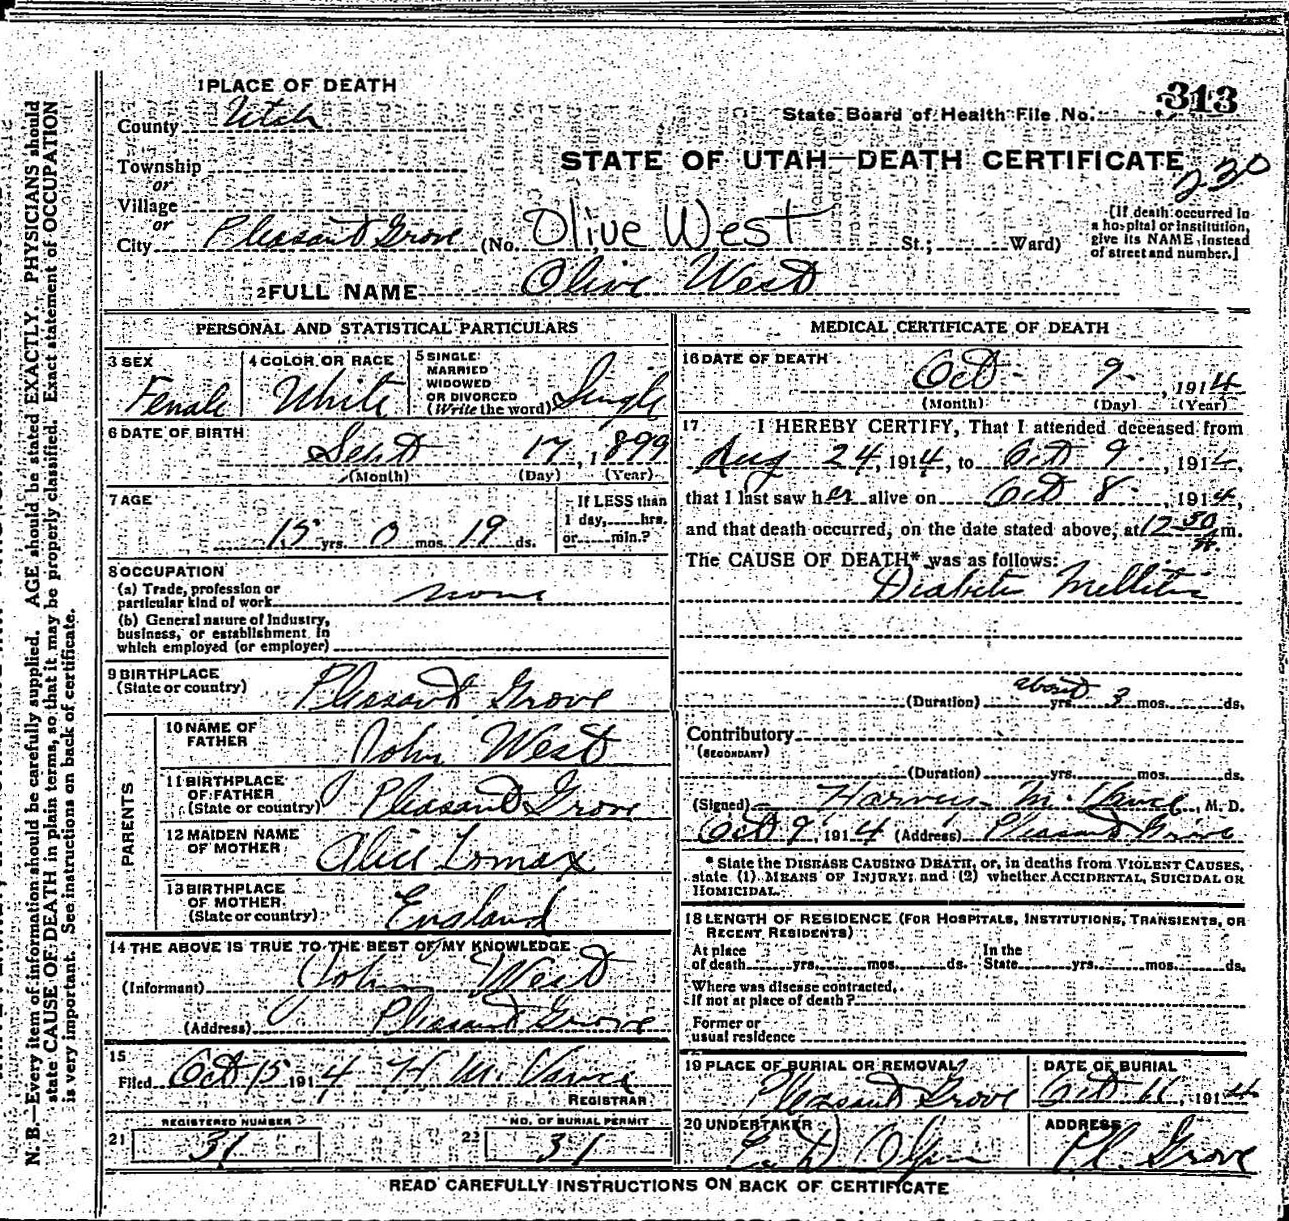 1 PLACE OF DEATH
County Utah
State Board of Health File No. 313
Township
STATE OF UTAH—DEATH CERTIFICATE
230
or
Village
or
City Pleasant Grove (No. Olive West St.; Ward)
(If death occurred in
a hospital or institution,
give its NAME, instead
of street and number.]
2 FULL NAME Olive West
PERSONAL AND STATISTICAL PARTICULARS
3 SEX
Female
4 COLOR OR RACE
White
5 SINGLE
MARRIED
WIDOWED
OR DIVORCED
(Write the word) Single
6 DATE OF BIRTH
Sept 17, 1899
(Month) (Day) (Year)
7 AGE
15 yrs. 0 mos. 19 ds.
If LESS than
1 day, hrs.
or min.?
8 OCCUPATION
(a) Trade, profession or
particular kind of work none
(b) General nature of Industry,
business, or establishment in
which employed (or employer)
9 BIRTHPLACE
(State or country) Pleasant Grove
PARENTS
10 NAME OF
FATHER John West
11 BIRTHPLACE
OF FATHER
(State or country) Pleasant Grove
12 MAIDEN NAME
OF MOTHER Alice Lomax
13 BIRTHPLACE
OF MOTHER
(State or country) England
14 THE ABOVE IS TRUE TO THE BEST OF MY KNOWLEDGE
(Informant) John West
(Address) Pleasant Grove
15
Filed Oct 15 1914 H M
REGISTRAR
REGISTERED NUMBER
21 31
NO. OF BURIAL PERMIT
22 31
MEDICAL CERTIFICATE OF DEATH
16 DATE OF DEATH
Oct 9, 1914
(Month) (Day) (Year)
17 I HEREBY CERTIFY, That I attended deceased from
Aug 24, 1914, to Oct 9, 191
that I last saw her alive on Oct 8 1914,
and that death occurred, on the date stated above, at 12 30 m.
The CAUSE OF DEATH* was as follows:
Diabetes Mellitis
about
(Duration) yrs. 3 mos. ds.
Contributory
(SECONDARY)
(Duration) yrs. mos. ds.
(Signed) M. , M. D.
Oct 9, 1914 (Address) Pleasant Grove
* State the DISEASE CAUSING DEATH, or, in deaths from VIOLENT CAUSES,
state (1) MEANS OF INJURY; and (2) whether ACCIDENTAL, SUICIDAL OR
HOMICIDAL.
18 LENGTH OF RESIDENCE (FOR HOSPITALS, INSTITUTIONS, TRANSIENTS, OR
RECENT RESIDENTS)
At place
of death yrs. mos. ds.
In the
State yrs. mos. ds.
Where was disease contracted,
if not at place of death?
Former or
usual residence
19 PLACE OF BURIAL OR REMOVAL
Pleasant Grove
DATE OF BURIAL
Oct 1914
20 UNDERTAKER
ADDRESS
Pl. Grove
READ CAREFULLY INSTRUCTIONS ON BACK OF CERTIFICATE
N. B.—Every item of information should be carefully supplied. AGE should be stated EXACTLY. PHYSICIANS should
state CAUSE OF DEATH in plain terms, so that it may be properly classified. Exact statement of OCCUPATION
is very important. See instructions on back of certificate.